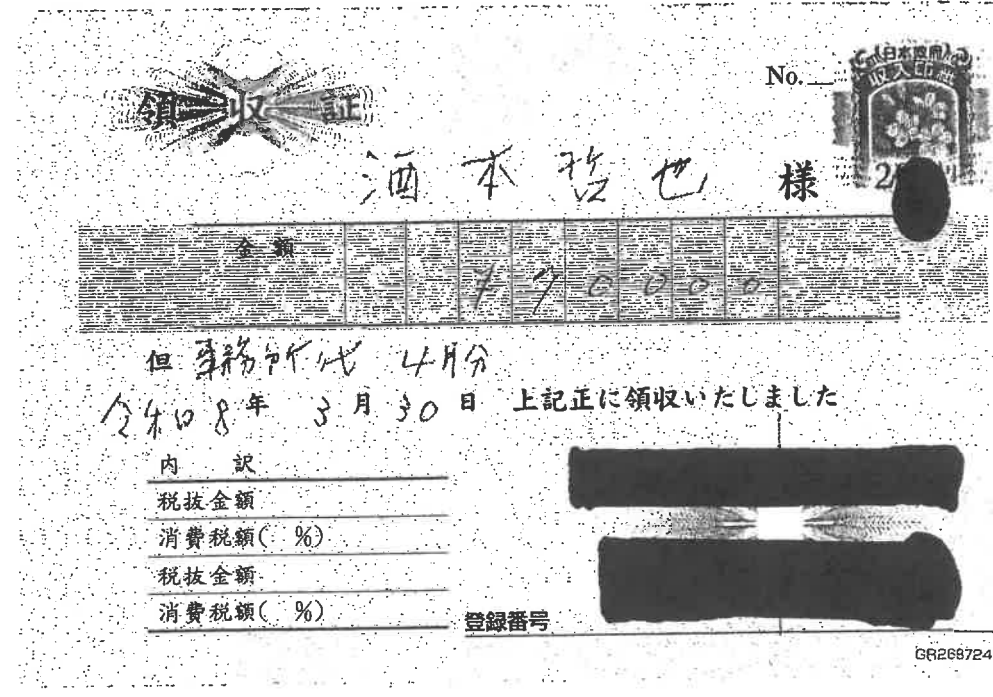 領収証
No.
日本政府
収入印紙
2
酒本哲也 様
金額 770000
但 事務所代 4月分
令和8年 3月30日 上記正に領収いたしました
内訳
税抜金額
消費税額( %)
税抜金額
消費税額( %)
登録番号
GR268724